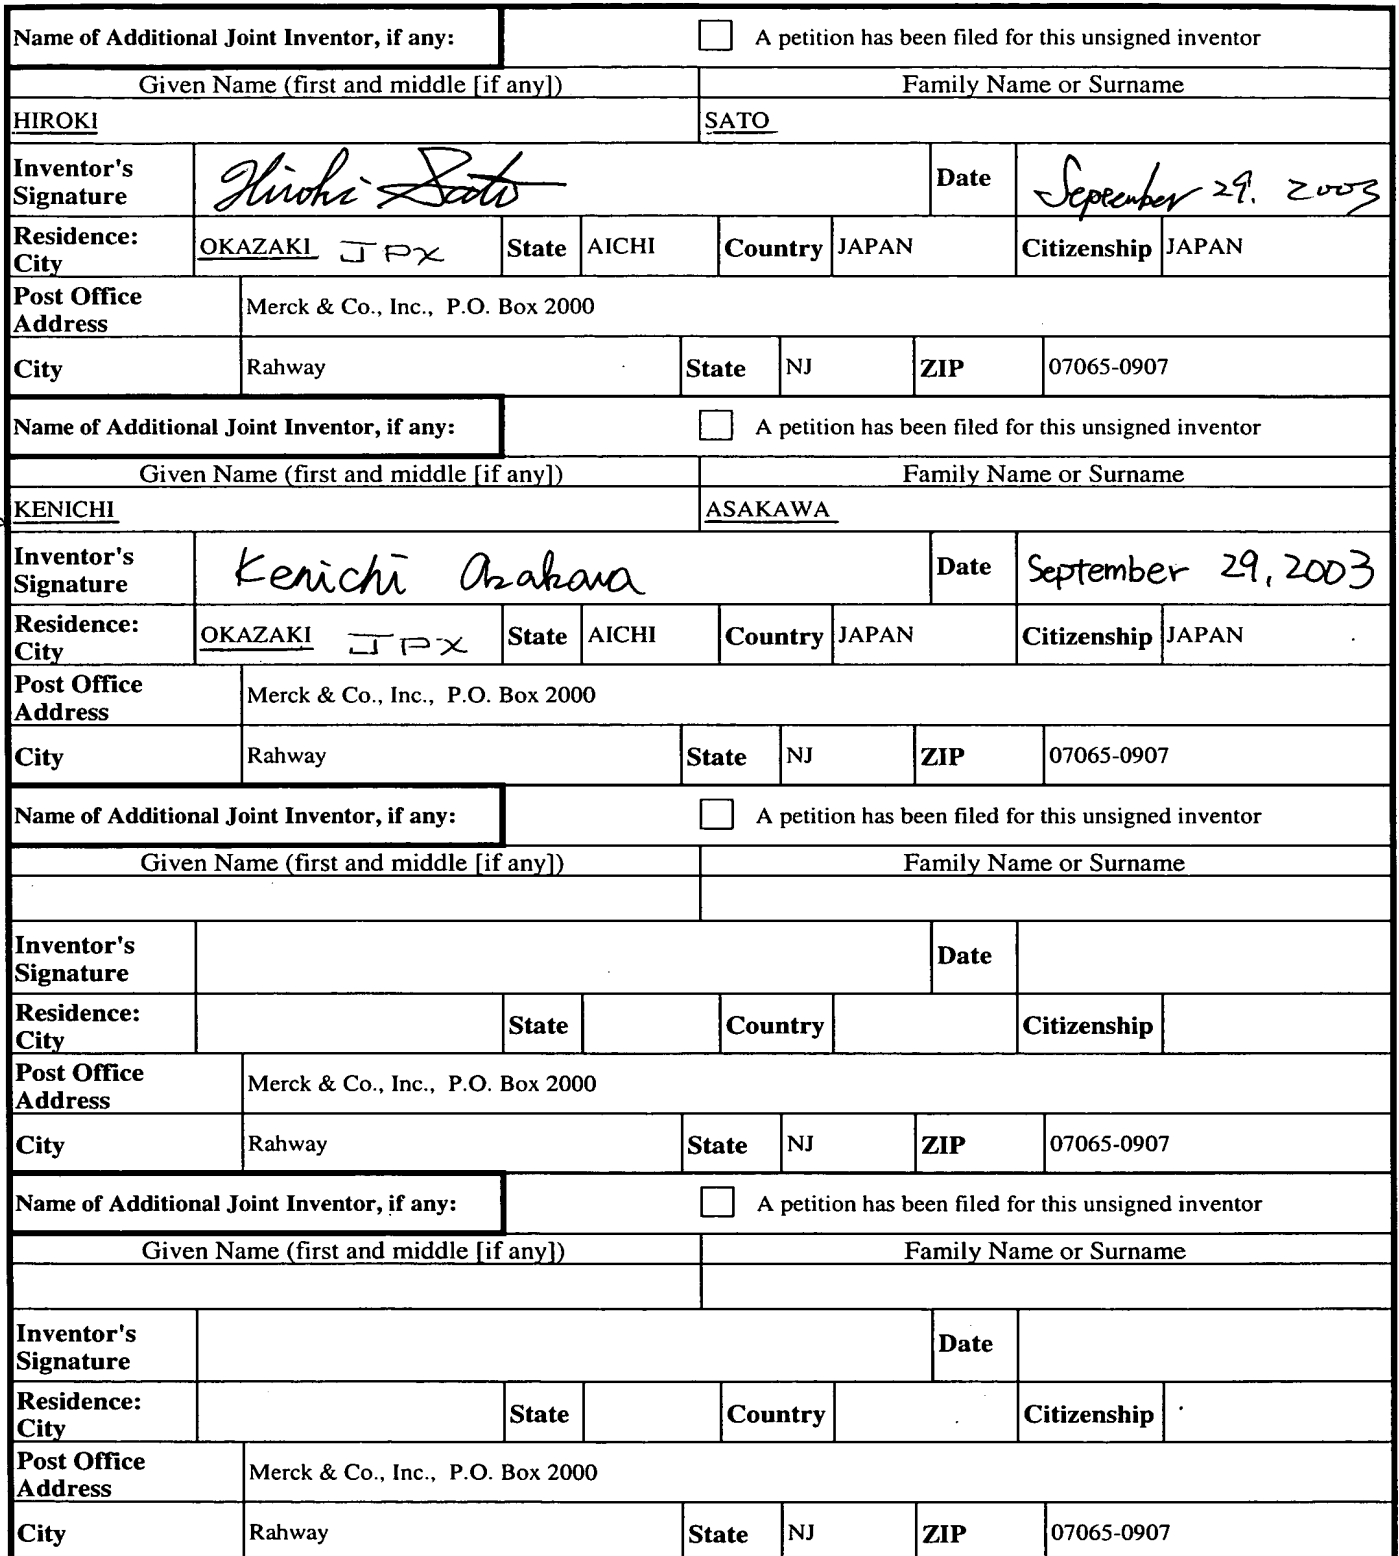 Name of Additional Joint Inventor, if any: A petition has been filed for this unsigned inventor
Given Name (first and middle [if any]) Family Name or Surname
HIROKI SATO
Inventor's Signature Hiroki Sato Date September 29. 2003
Residence: City OKAZAKI JPX State AICHI Country JAPAN Citizenship JAPAN
Post Office Address Merck & Co., Inc., P.O. Box 2000
City Rahway State NJ ZIP 07065-0907
Name of Additional Joint Inventor, if any: A petition has been filed for this unsigned inventor
Given Name (first and middle [if any]) Family Name or Surname
KENICHI ASAKAWA
Inventor's Signature Kenichi Asakawa Date September 29, 2003
Residence: City OKAZAKI JPX State AICHI Country JAPAN Citizenship JAPAN
Post Office Address Merck & Co., Inc., P.O. Box 2000
City Rahway State NJ ZIP 07065-0907
Name of Additional Joint Inventor, if any: A petition has been filed for this unsigned inventor
Given Name (first and middle [if any]) Family Name or Surname
Inventor's Signature Date
Residence: City State Country Citizenship
Post Office Address Merck & Co., Inc., P.O. Box 2000
City Rahway State NJ ZIP 07065-0907
Name of Additional Joint Inventor, if any: A petition has been filed for this unsigned inventor
Given Name (first and middle [if any]) Family Name or Surname
Inventor's Signature Date
Residence: City State Country Citizenship
Post Office Address Merck & Co., Inc., P.O. Box 2000
City Rahway State NJ ZIP 07065-0907